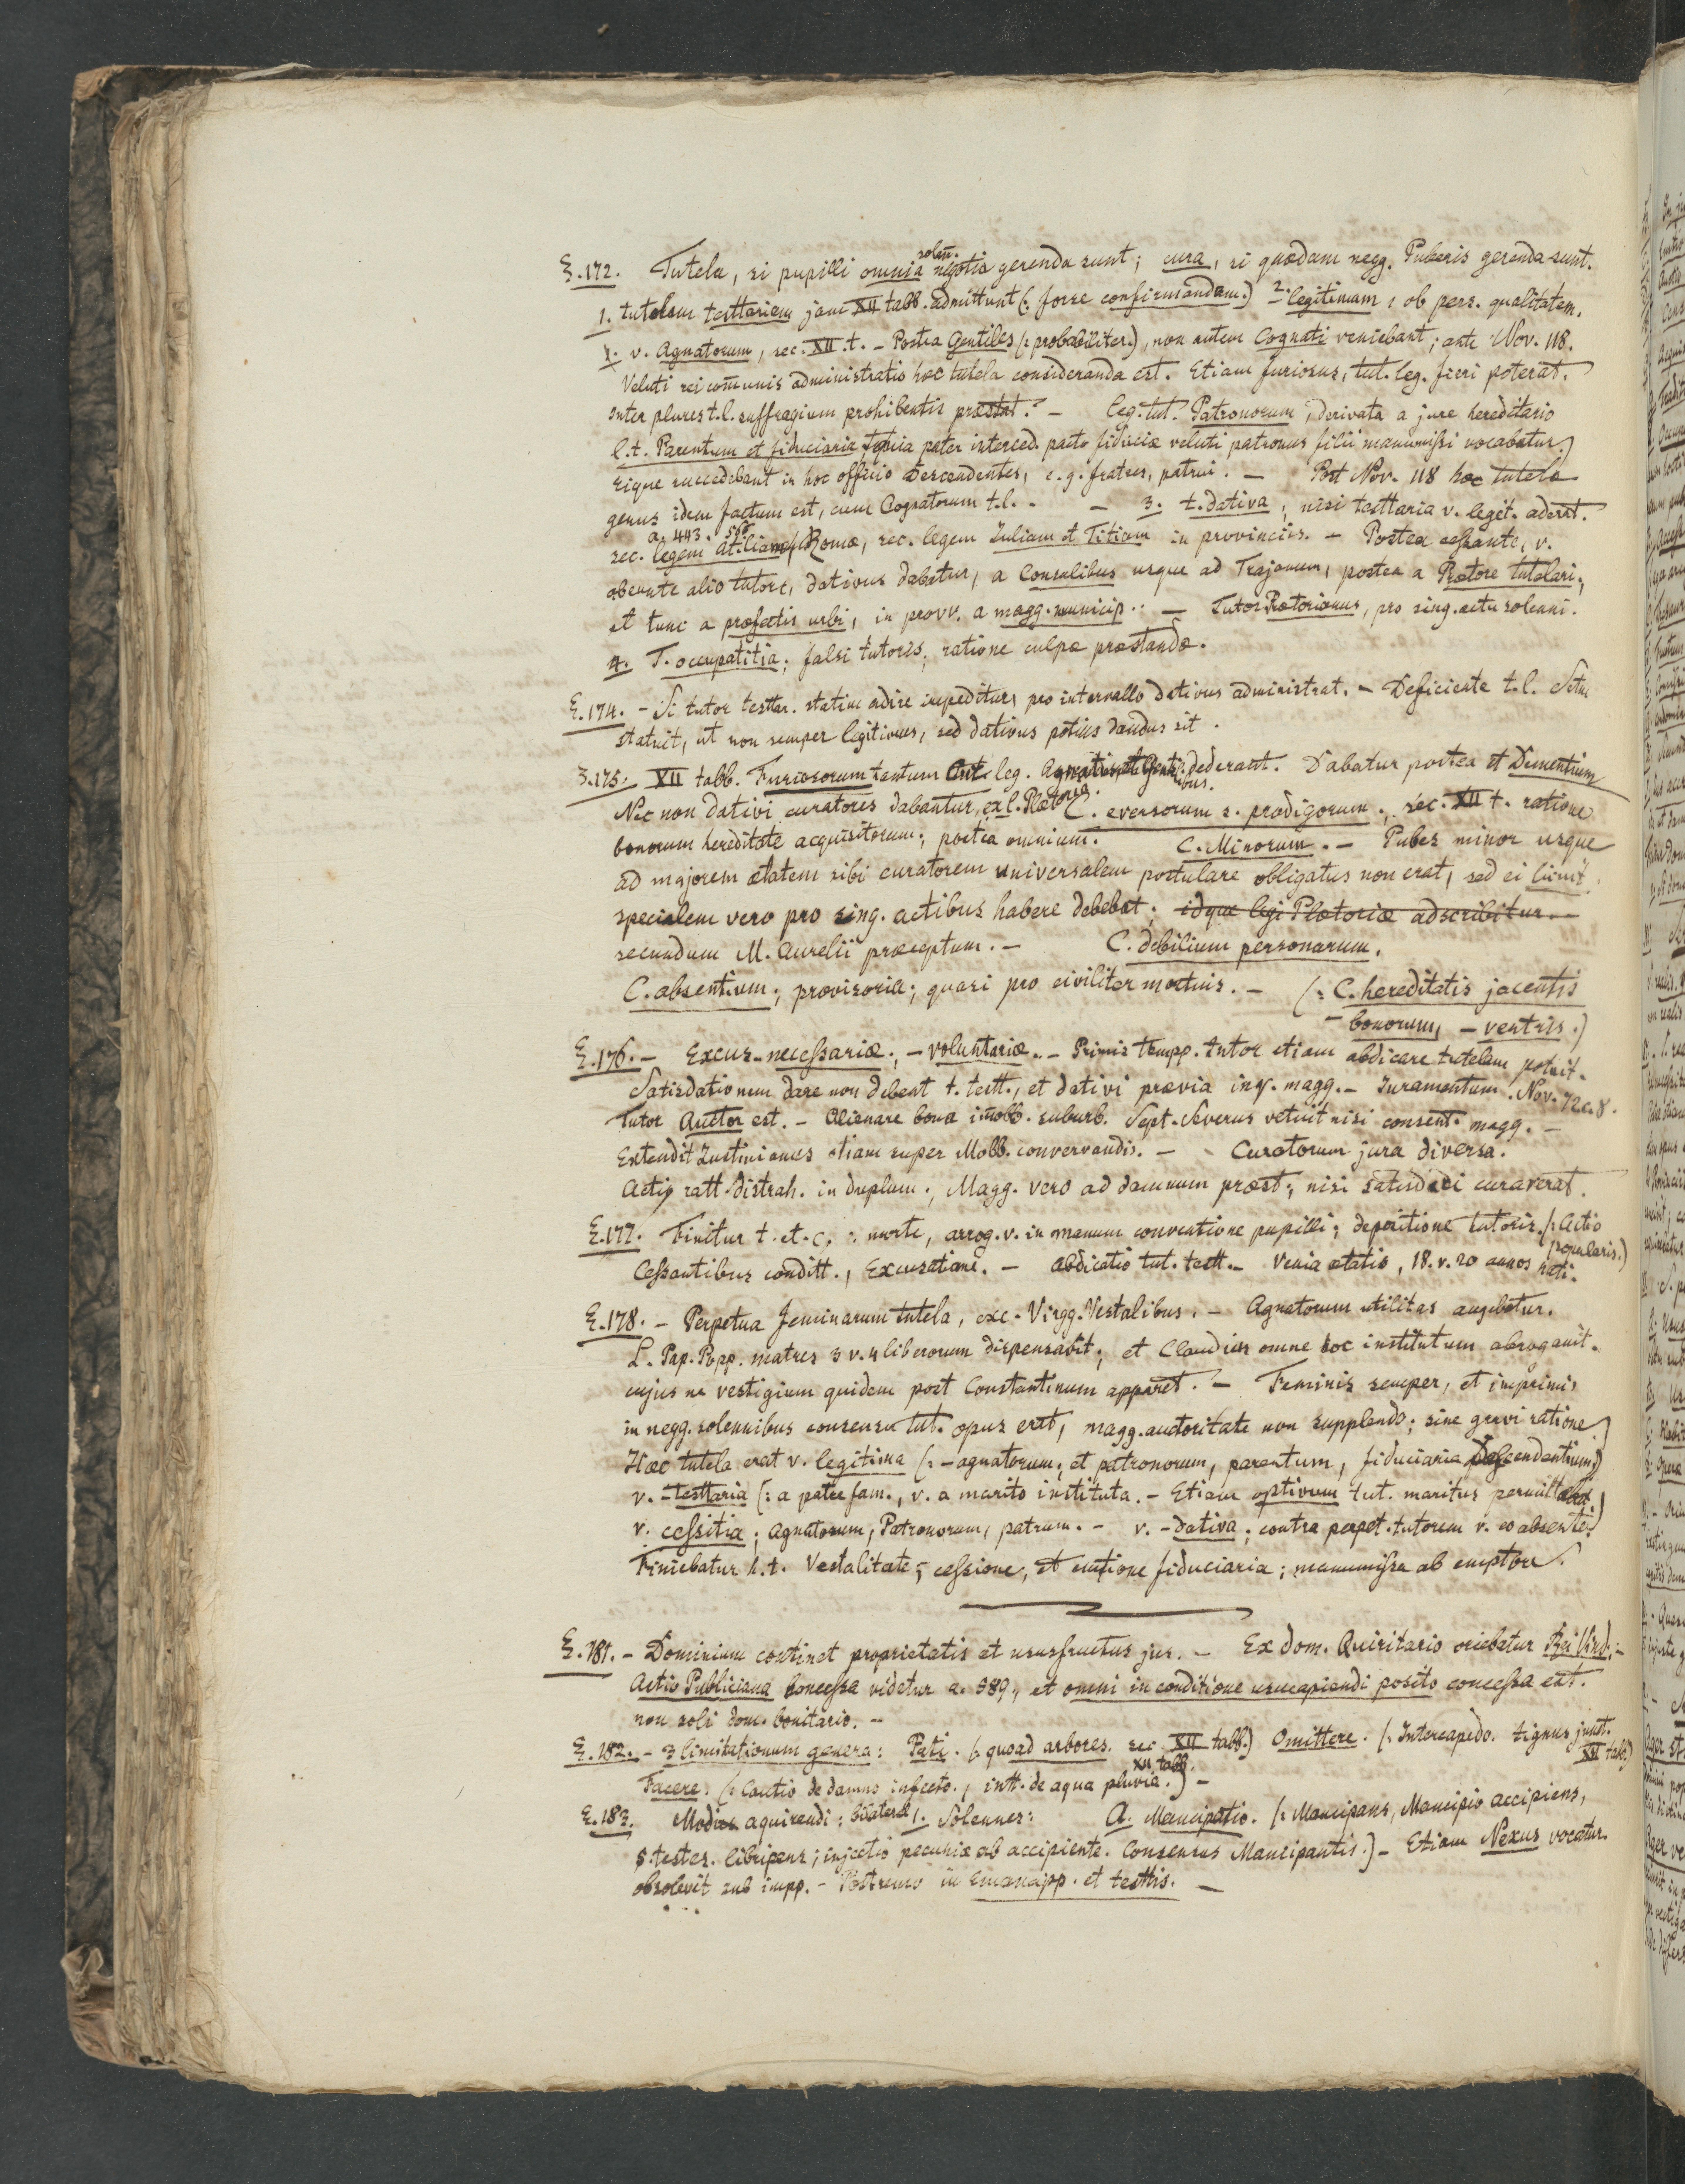 §.172. Tutela, si pupilli omnia solenn. negotia gerenda sunt; cura, si quædam negg. Puberis gerenda sunt.
1. tutelam testtariam jam XII tabb. admittunt (: forse confirmandam.) 2. legitimam, ob pers. qualitatem.
v. Agnatorum, sec. XII.t. - Postea Gentiles (: probabiliter.), non autem Cognati veniebant; ante Nov. 118.
Veluti rei com̄unis administratio hæc tutela consideranda est. Etiam furiosus, tut. leg. fieri poterat.
Inter plures t.l. suffragium prohibentis præstat. - Leg. tut. Patronorum, derivata a jure hereditario
l.t. Parentum et fiduciaria, quia pater interced. pacto fiduciæ veluti patronus filii manumissi vocabatur.)
Eique succedebant in hoc officio Descendentes, e.g. fratres, patrui. - Post Nov. 118 hoc tutela
genus idem factum est, cum Cognatorum t.l. - - 3. t. dativa, nisi testtaria v. legit. aderat.
a. 443. 556
sec. legem Atiliam Romæ, sec. legem Juliam et Titiam in provinciis. - Postea cessante, v.
abeunte alio tutore, dativus dabatur, a Consulibus usque ad Trajanum, postea a Prætore tutelari;
et tunc a præfectis urbi, in provv. a magg. municip. - Tutor Prætorianus, pro sing. actu solenni.
4. T. occupatitia; falsi tutoris; ratione culpæ præstandæ.
§.174. - Si tutor testtar. statim adire impeditur, pro intervallo dativus administrat. - Deficiente t.l. Sctm
statuit, ut non semper legitimus, sed dativus potius dandus sit.
§.175. XII tabb. Furiosorum tantum Cut. leg. Agnatis et Gentilibus. dederant. Dabatur postea et Dementium
Nec non dativi curatores dabantur, ex l. Plætoria. C. eversorum s. prodigorum. sec. XII t. ratione
bonorum hereditate acquisitorum; postea omnium. C. Minorum. - Pubes minor usque
ad majorem ætatem sibi curatorem universalem postulare obligatus non erat, sed ei licuit
specialem vero pro sing. actibus habere debebat; idque legi Plætoriæ adscribitur. -
secundum M. Aurelii præceptum. - C. debilium personarum.
C. absentium; provisoria; quasi pro civiliter mortuis. - (: C. hereditatis jacentis
- bonorum, - ventris.)
§.176. - Excus. necessariæ; - voluntariæ. - Primis tempp. tutor etiam abdicare tutelam potuit.
Satisdationem dare non debent t. testt., et dativi prævia inq. magg. - Juramentum. Nov. 72 c. 8.
Tutor Auctor est. - Alienare bona im̄obb. suburb. Sept. Severus vetuit nisi consent. magg. -
Extendit Justinianus etiam super Mobb. convervandis. - Curatorum jura diversa.
Actio ratt. distrah. in duplum; Magg. vero ad damnum præst; nisi satisdari curaverat.
§.177. Finitur t. et. c.: morte, arrog. v. in manum conventione pupilli; depositione tutoris. (: Actio popularis.)
Cessantibus conditt., Excusatione. - Abdicatio tut. testt. - Venia ætatis, 18. v. 20 annos nati.
§.178. - Perpetua feminarum tutela, exc. Virgg. Vestalibus. - Agnatorum utilitas augebatur.
L. Pap. Popp. matres 3 v. 4 liberorum dispensabit; et Claudius omne hoc institutum abrogavit.
cujus ne vestigium quidem post Constantinum apparet. - Feminis semper, et imprimis
in negg. solennibus consensu tut. opus erat, magg. auctoritate non supplendo; sine gravi ratione.)
Hæc tutela erat v. legitima (: - agnatorum, et patronorum, parentum, fiduciaria Descendentium.)
v. - testtaria (: a patre fam., v. a marito instituta. - Etiam optivum tut. maritus permittebat.)
v. cessitia; Agnatorum, Patronorum, patrum. - v. - dativa; contra perpet. tutorem v. eo absente.)
Finiebatur h.t. Vestalitate; cessione, et emtione fiduciaria; manumissa ab emptore.
§.181. - Dominium continet proprietatis et ususfructus jus. - Ex dom. Quiritario oriebatur Rei Vind. -
Actio Publiciana concessa videtur a. 589., et omni in conditione usucapiendi posito concessa est.
non soli dom. bonitario. -
§.182. - 3 limitationum genera: Pati. (: quoad arbores. sec. XII tabb.) Omittere. (: Intercapedo. tignus junt. XII tabb.)
Facere. (: Cautio de damno infecto., intt. de aqua pluvia. XII tabb.) -
§.183. Modus aquirendi: bilateral 1. Solennes: A. Mancipatio. (: Mancipans, Mancipio accipiens,
5. testes. libripens; injectio pecuniæ ab accipiente. Consensus Mancipantis.) - Etiam Nexus vocatur.
obsolevit sub impp. - Postremo in Emancipp. et testtis. -